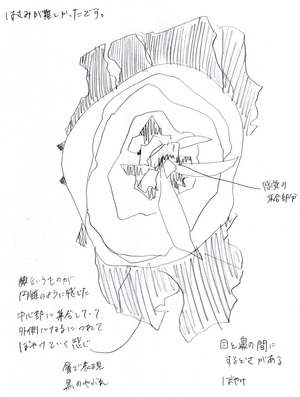 はさみが難しかったです。
感覚の
集合部分
顔というものが
円錐のように感じた
中心部に集合していて、
外側になるにつれて
ぼやけていく感じ
眉で表現
黒のやぶれ
目と鼻の間に
するどさがある
ぼやけ